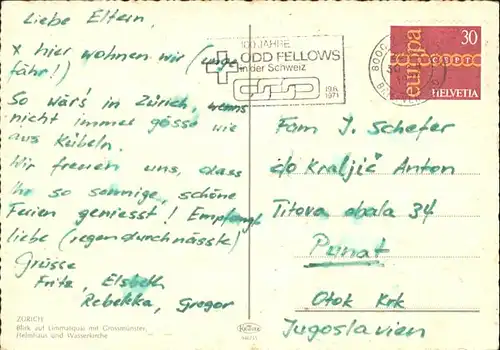 Liebe Eltern,
x hier wohnen wir (unge
fähr!)
So wär's in Zürich, wenns
nicht immer gösse wie
aus Kübeln.
Wir freuen uns, dass
Ihr so sonnige, schöne
Ferien geniesst! Empfangt
liebe (regendurchnässte)
Grüsse
Fritz, Elsbeth
Rebekka, Gregor
ZÜRICH
Blick auf Limmatquai mit Grossmünster,
Helmhaus und Wasserkirche
100 JAHRE
ODD FELLOWS
in der Schweiz
19.6.
1971
30
europa
CEPT
HELVETIA
Fam J. Schefer
c/o Kraljič Anton
Titova obala 34
Punat
Otok Krk
Jugoslavien